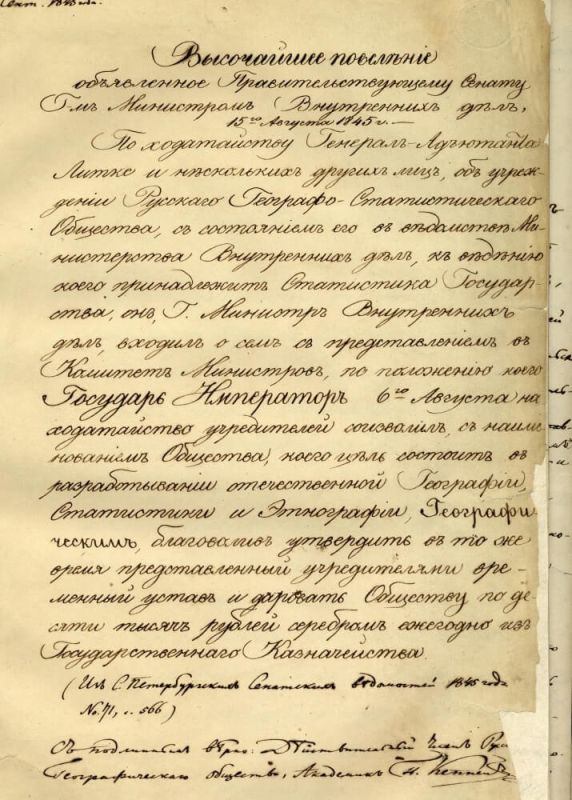 Сент. 1845 года.
Высочайшее повелѣніе
объявленное Правительствующему Сенату
Гмъ Министромъ Внутреннихъ дѣлъ,
15го Августа 1845 г.—
По ходатайству Генералъ-Адъютанта
Литке и нѣсколькихъ другихъ лицъ, объ учреж-
деніи Русскаго Географо-Статистическаго
Общества, съ состояніемъ его въ вѣдомствѣ Ми-
нистерства Внутреннихъ дѣлъ, къ вѣдѣнію
коего принадлежитъ Статистика Государ-
ства, онъ, Г. Министръ Внутреннихъ
дѣлъ, входилъ о семъ съ представленіемъ въ
Комитетъ Министровъ, по положенію коего
Государь Императоръ 6го Августа на
ходатайство учредителей соизволилъ, съ наиме-
нованіемъ Общества, коего цѣль состоитъ въ
разработываніи отечественной Географіи,
Статистики и Этнографіи, Географи-
ческимъ, благоволивъ утвердить въ то же
время представленный учредителями вре-
менный уставъ и даровать Обществу по де-
сяти тысячъ рублей серебромъ ежегодно изъ
Государственнаго Казначейства.
(Изъ С. Петербургскихъ Сенатскихъ вѣдомостей 1845 года
No 71, с. 566)
Съ подлиннымъ вѣрно: Дѣйствительный Членъ Рус
Географическаго общества, Академикъ П. Кеппенъ